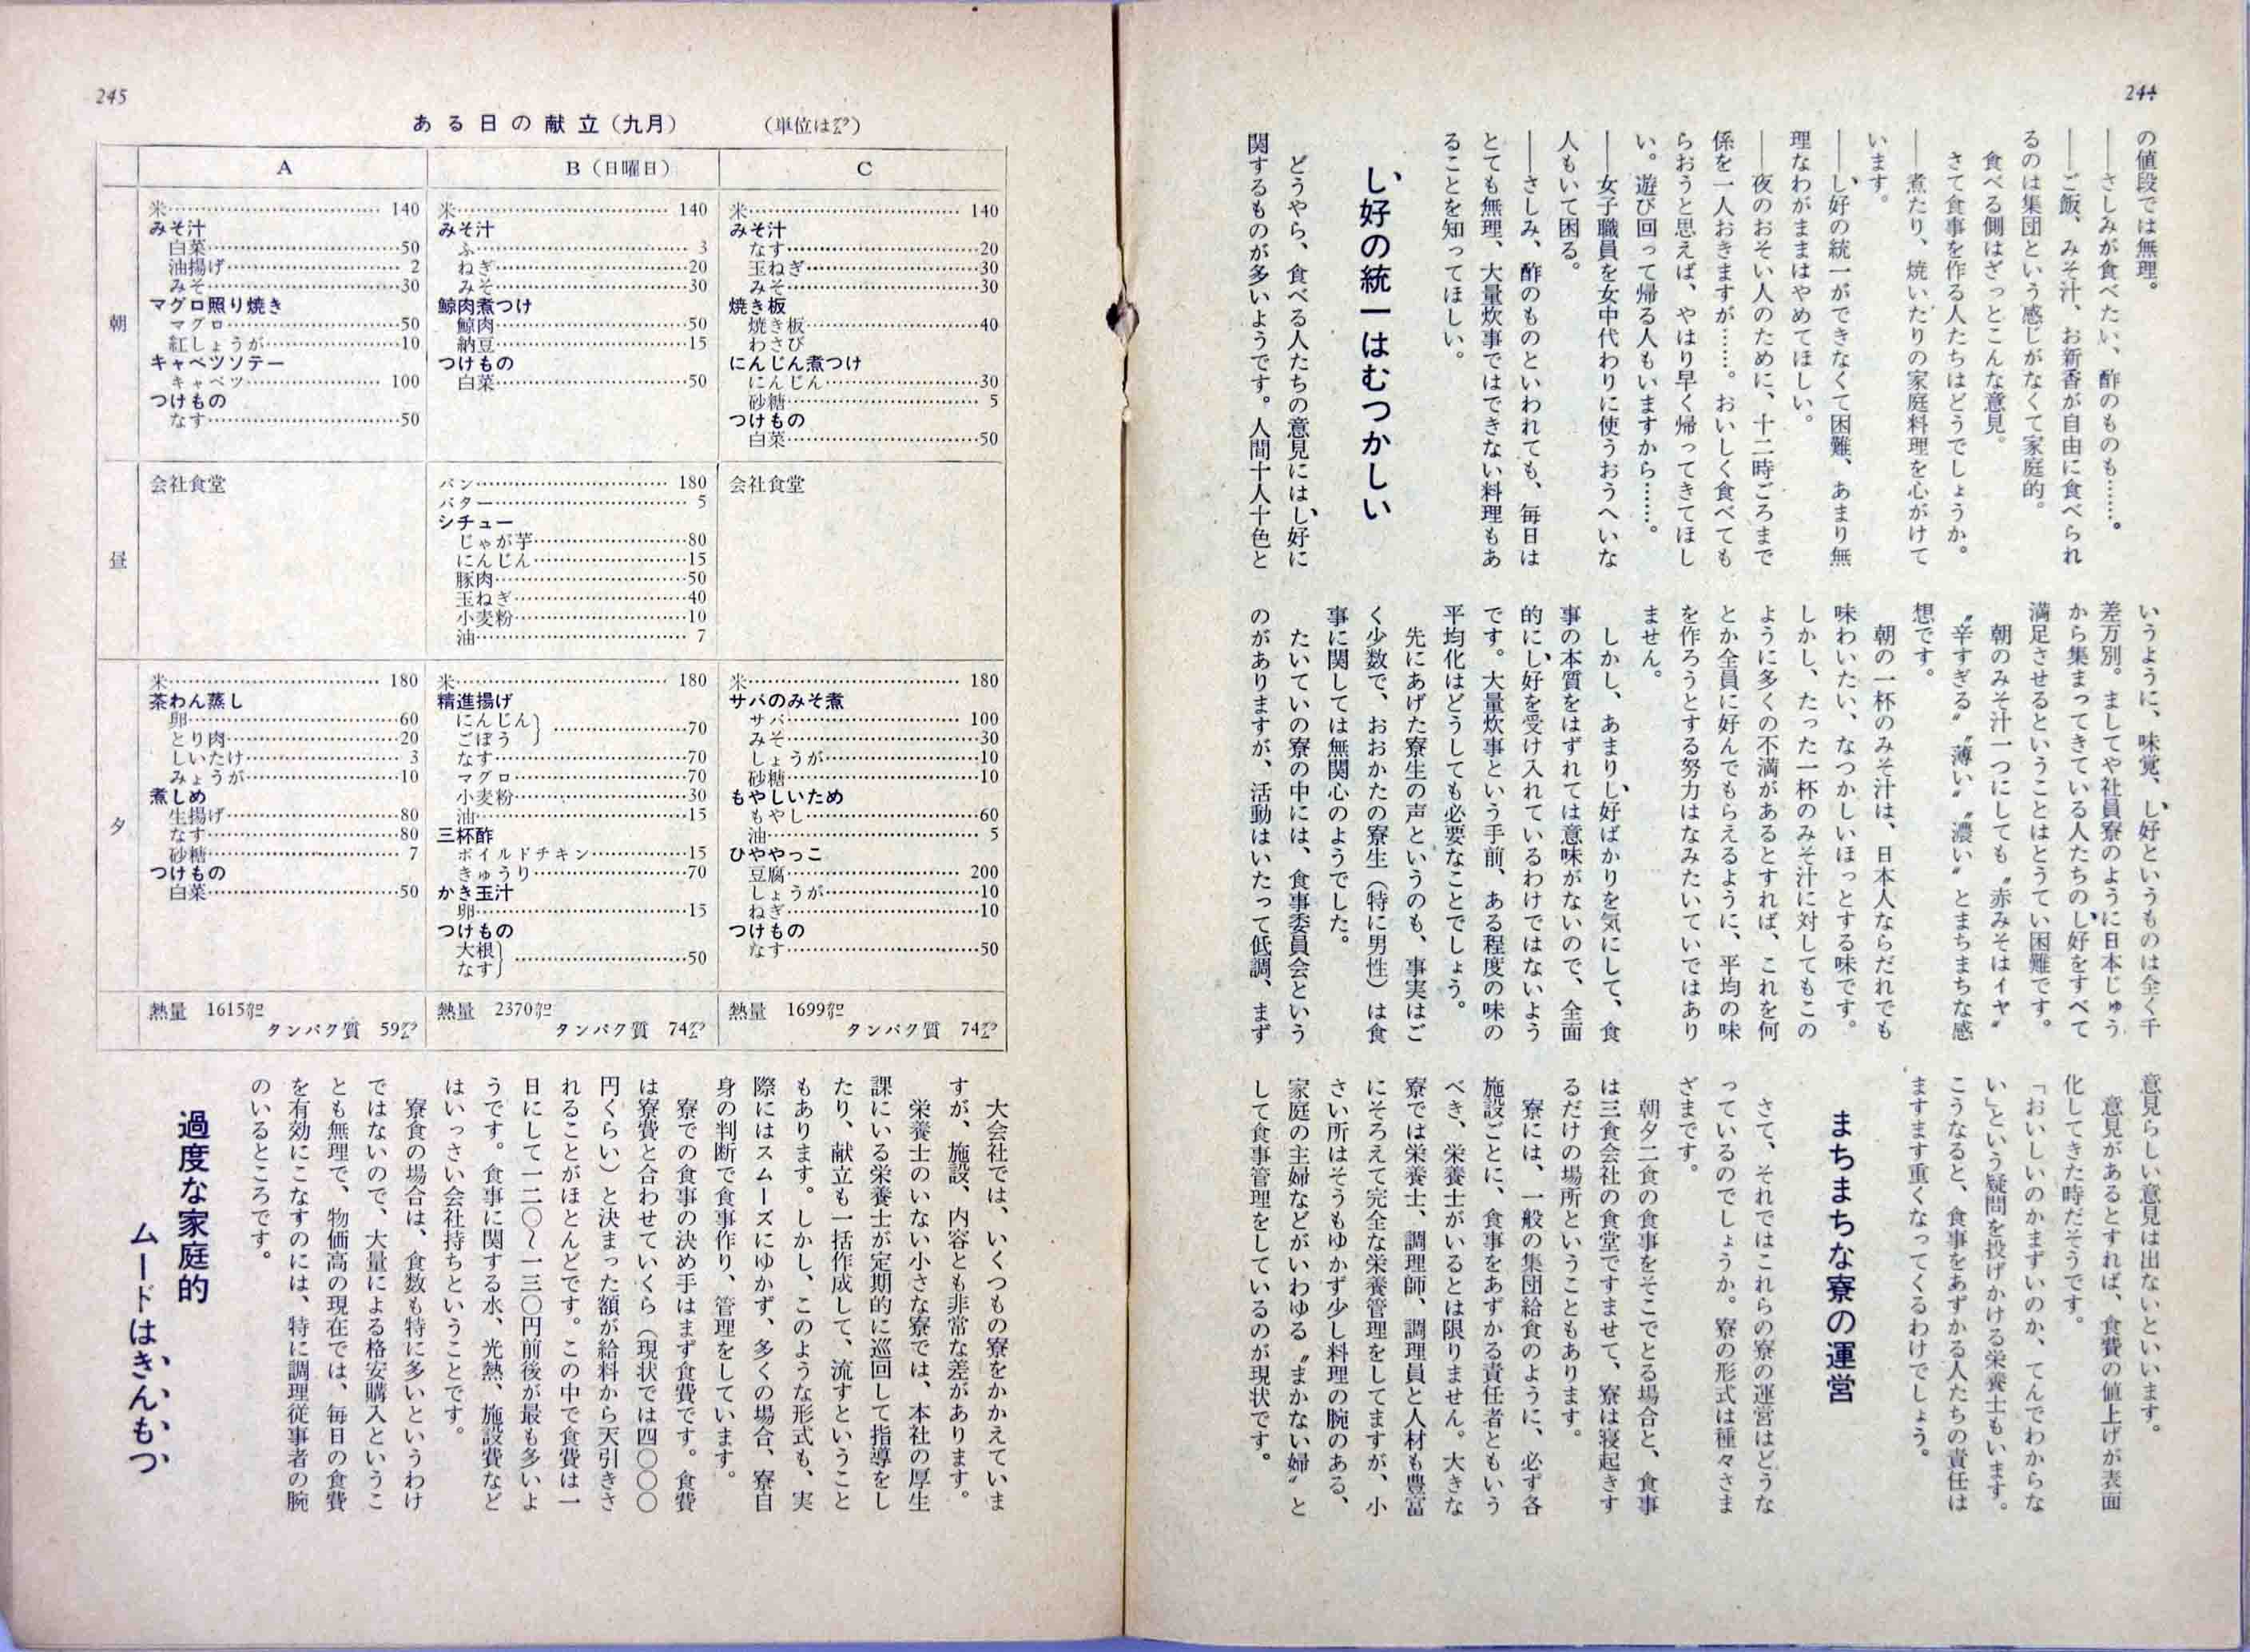 244
の値段では無理。
――さしみが食べたい、酢のものも……。
――ご飯、みそ汁、お新香が自由に食べられ
るのは集団という感じがなくて家庭的。
食べる側はざっとこんな意見。
さて食事を作る人たちはどうでしょうか。
――煮たり、焼いたりの家庭料理を心がけて
います。
――し好の統一ができなくて困難、あまり無
理なわがままはやめてほしい。
――夜のおそい人のために、十二時ごろまで
係を一人おきますが……。おいしく食べても
らおうと思えば、やはり早く帰ってきてほし
い。遊び回って帰る人もいますから……。
――女子職員を女中代わりに使うおうへいな
人もいて困る。
――さしみ、酢のものといわれても、毎日は
とても無理、大量炊事ではできない料理もあ
ることを知ってほしい。
し好の統一はむつかしい
どうやら、食べる人たちの意見にはし好に
関するものが多いようです。人間十人十色と
いうように、味覚、し好というものは全く千
差万別。ましてや社員寮のように日本じゅう
から集まってきている人たちのし好をすべて
満足させるということはとうてい困難です。
朝のみそ汁一つにしても〝赤みそはイヤ〟
〝辛すぎる〟〝薄い〟〝濃い〟とまちまちな感
想です。
朝の一杯のみそ汁は、日本人ならだれでも
味わいたい、なつかしいほっとする味です。
しかし、たった一杯のみそ汁に対してもこの
ように多くの不満があるとすれば、これを何
とか全員に好んでもらえるように、平均の味
を作ろうとする努力はなみたいていではあり
ません。
しかし、あまりし好ばかりを気にして、食
事の本質をはずれては意味がないので、全面
的にし好を受け入れているわけではないよう
です。大量炊事という手前、ある程度の味の
平均化はどうしても必要なことでしょう。
先にあげた寮生の声というのも、事実はご
く少数で、おおかたの寮生（特に男性）は食
事に関しては無関心のようでした。
たいていの寮の中には、食事委員会という
のがありますが、活動はいたって低調、まず
意見らしい意見は出ないといいます。
意見があるとすれば、食費の値上げが表面
化してきた時だそうです。
「おいしいのかまずいのか、てんでわからな
い」という疑問を投げかける栄養士もいます。
こうなると、食事をあずかる人たちの責任は
ますます重くなってくるわけでしょう。
まちまちな寮の運営
さて、それではこれらの寮の運営はどうな
っているのでしょうか。寮の形式は種々さま
ざまです。
朝夕二食の食事をそこでとる場合と、食事
は三食会社の食堂ですませて、寮は寝起きす
るだけの場所ということもあります。
寮には、一般の集団給食のように、必ず各
施設ごとに、食事をあずかる責任者ともいう
べき、栄養士がいるとは限りません。大きな
寮では栄養士、調理師、調理員と人材も豊富
にそろえて完全な栄養管理をしてますが、小
さい所はそうもゆかず少し料理の腕のある、
家庭の主婦などがいわゆる〝まかない婦〟と
して食事管理をしているのが現状です。
245
ある日の献立（九月）　（単位はグラム）
A　B（日曜日）　C
朝
米…… 140
みそ汁
白菜……50
油揚げ…… 2
みそ……30
マグロ照り焼き
マグロ……50
紅しょうが……10
キャベツソテー
キャベツ…… 100
つけもの
なす……50
米…… 140
みそ汁
ふ…… 3
ねぎ……20
みそ……30
鯨肉煮つけ
鯨肉……50
納豆……15
つけもの
白菜……50
米…… 140
みそ汁
なす……20
玉ねぎ……30
みそ……30
焼き板
焼き板……40
わさび
にんじん煮つけ
にんじん……30
砂糖…… 5
つけもの
白菜……50
昼
会社食堂
パン…… 180
バター…… 5
シチュー
じゃが芋……80
にんじん……15
豚肉……50
玉ねぎ……40
小麦粉……10
油…… 7
会社食堂
夕
米…… 180
茶わん蒸し
卵……60
とり肉……20
しいたけ…… 3
みょうが……10
煮しめ
生揚げ……80
なす……80
砂糖…… 7
つけもの
白菜……50
米…… 180
精進揚げ
にんじん
ごぼう ……70
なす……70
マグロ……70
小麦粉……30
油……15
三杯酢
ボイルドチキン……15
きゅうり……70
かき玉汁
卵……15
つけもの
大根
なす ……50
米…… 180
サバのみそ煮
サバ…… 100
みそ……30
しょうが……10
砂糖……10
もやしいため
もやし……60
油…… 5
ひややっこ
豆腐…… 200
しょうが……10
ねぎ……10
つけもの
なす……50
熱量　1615カロリー
タンパク質　59グラム
熱量　2370カロリー
タンパク質　74グラム
熱量　1699カロリー
タンパク質　74グラム
大会社では、いくつもの寮をかかえていま
すが、施設、内容とも非常な差があります。
栄養士のいない小さな寮では、本社の厚生
課にいる栄養士が定期的に巡回して指導をし
たり、献立も一括作成して、流すということ
もあります。しかし、このような形式も、実
際にはスムーズにゆかず、多くの場合、寮自
身の判断で食事作り、管理をしています。
寮での食事の決め手はまず食費です。食費
は寮費と合わせていくら（現状では四〇〇〇
円くらい）と決まった額が給料から天引きさ
れることがほとんどです。この中で食費は一
日にして一二〇～一三〇円前後が最も多いよ
うです。食事に関する水、光熱、施設費など
はいっさい会社持ちということです。
寮食の場合は、食数も特に多いというわけ
ではないので、大量による格安購入というこ
とも無理で、物価高の現在では、毎日の食費
を有効にこなすのには、特に調理従事者の腕
のいるところです。
過度な家庭的
ムードはきんもつ